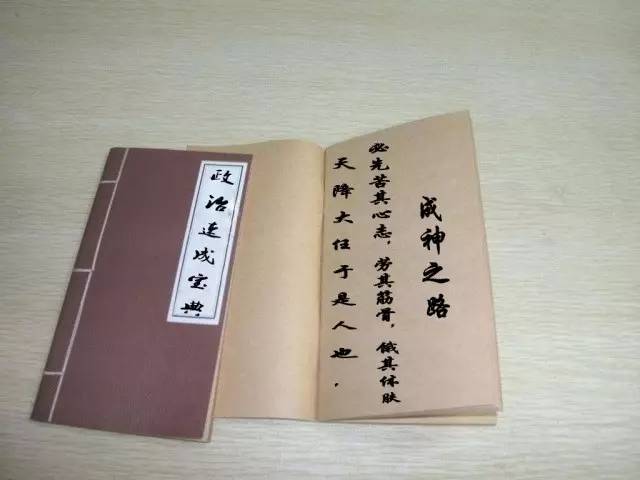 政治速成宝典
成神之路
天降大任于是人也，
必先苦其心志，劳其筋骨，饿其体肤